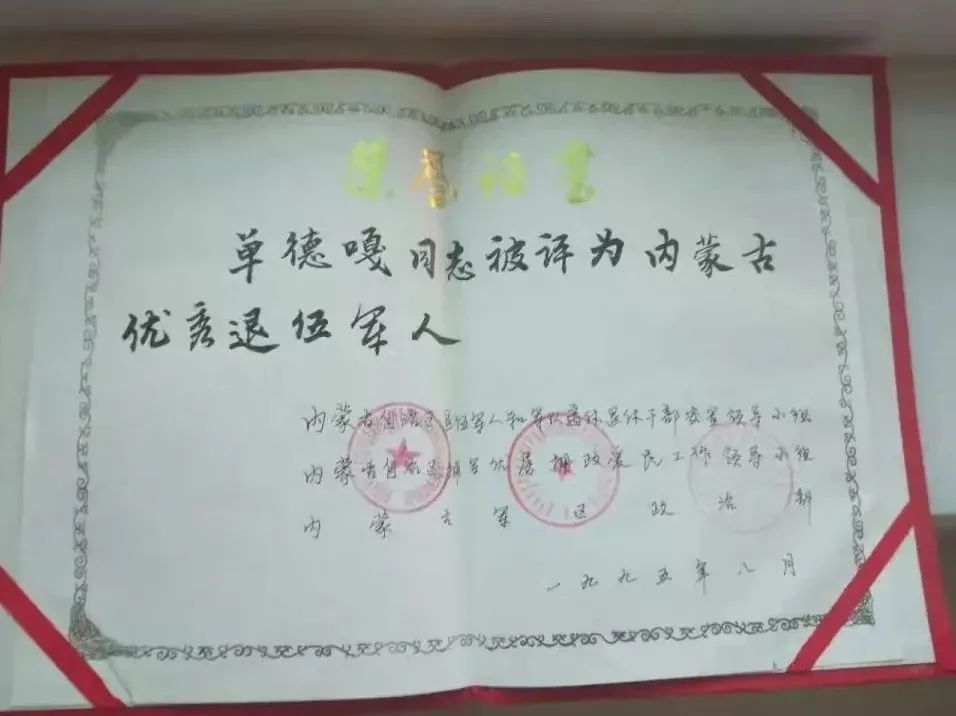 荣誉证书
单德嘎同志被评为内蒙古
优秀退伍军人
内蒙古自治区退伍军人和军队离休退休干部安置领导小组
内蒙古自治区拥军优属拥政爱民工作领导小组
内蒙古军区政治部
一九九五年八月